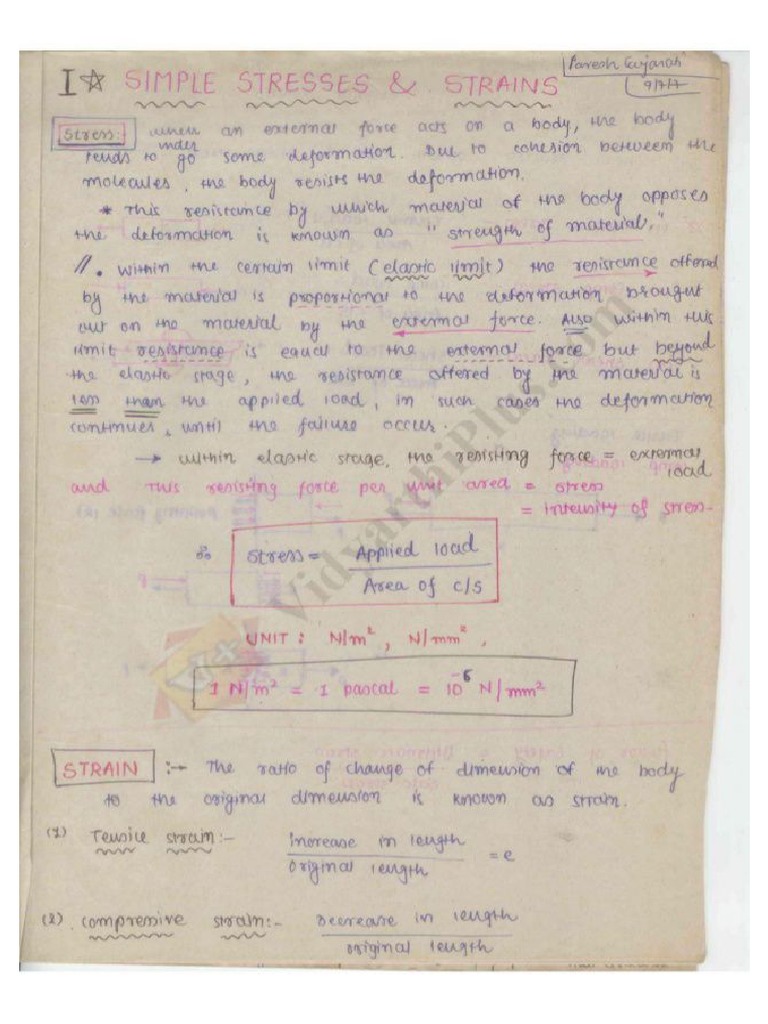 Paresh Gujarati
I ☆ SIMPLE STRESSES & STRAINS
9/7/17
Stress: when an external force acts on a body, the body
tends to under go some deformation. Due to cohesion between the
molecules, the body resists the deformation.
* This resistance by which material of the body opposes
the deformation is known as "strength of material."
//. within the certain limit (elastic limit) the resistance offered
by the material is proportional to the deformation brought
out on the material by the external force. Also within this
limit resistance is equal to the external force but beyond
the elastic stage, the resistance offered by the material is
less than the applied load, in such cases the deformation
continues, until the failure occurs.
→ within elastic stage, the resisting force = external load
and This resisting force per unit area = stress
= intensity of stress.
∴ Stress = Applied load
Area of c/s
UNIT: N/m², N/mm².
1 N/m² = 1 pascal = 10⁻⁶ N/mm²
STRAIN :- The ratio of change of dimension of the body
to the original dimension is known as strain.
(1) Tensile strain:- Increase in length
original length = e
(2). compressive strain:- Decrease in length
original length
VidyarthiPlus.com
V+